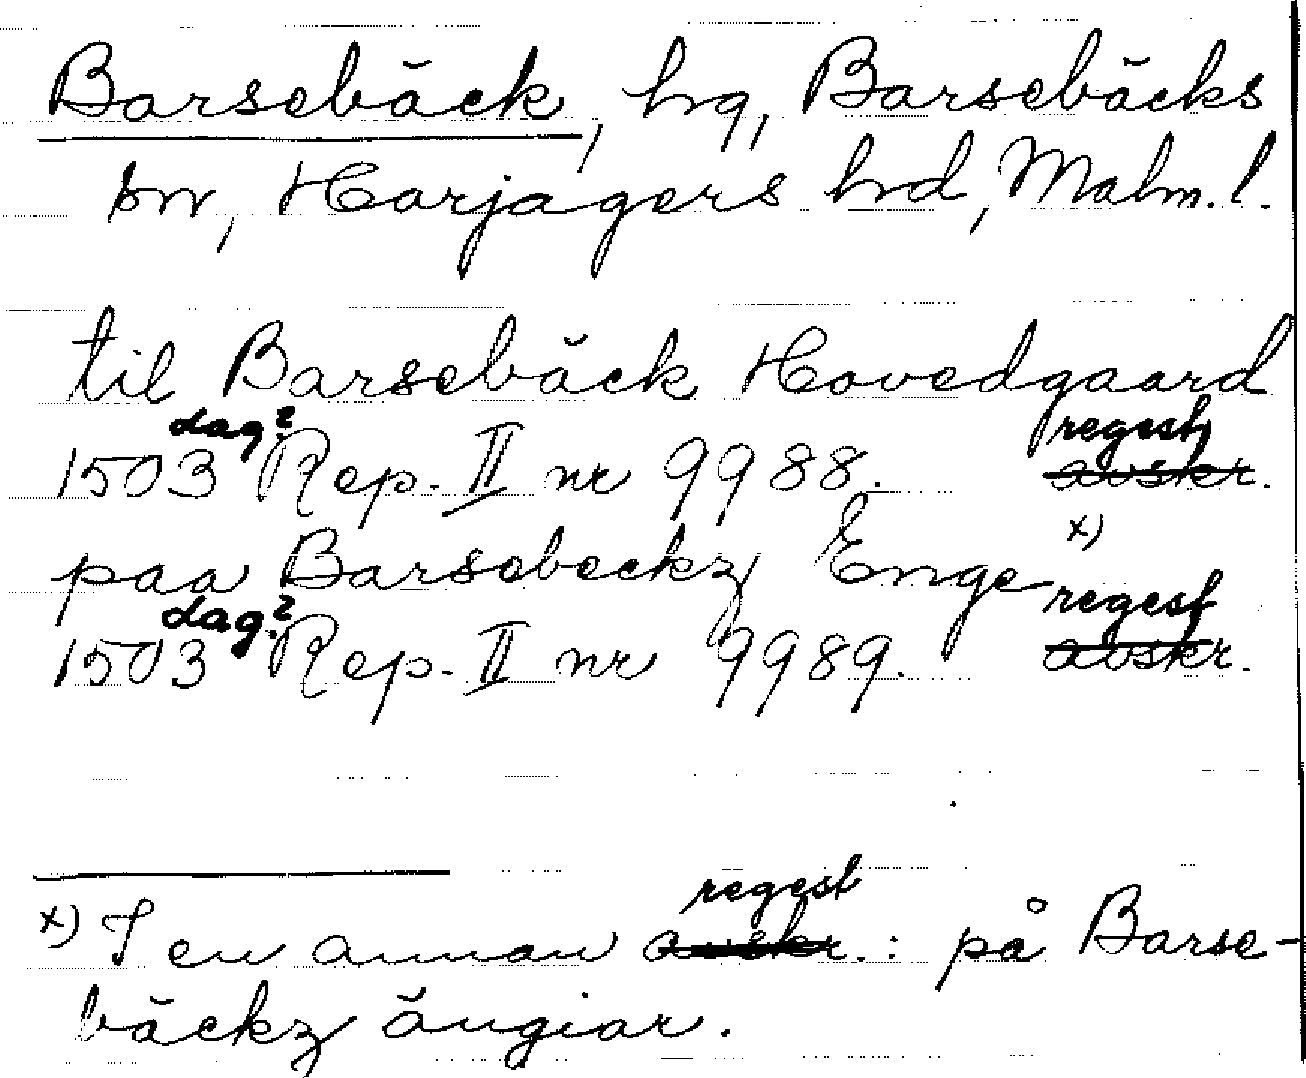 Barsebäck, hg, Barsebäcks
sn, Harjagers hd, Malm. l.
til Barsebäck Hovedgaard
dag? regest
1503 Rep. II nr 9988. avskr.
x)
paa Barsebeckz Enge
dag? regest
1503 Rep. II nr 9989. avskr.
regest
x) I en annan avskr. : på Barse-
bäckz ängiar.